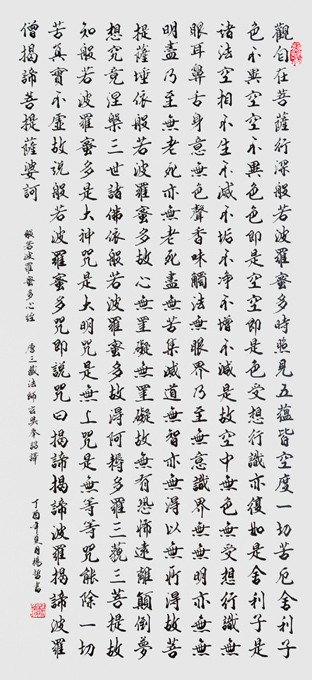 觀自在菩薩行深般若波羅蜜多時照見五蘊皆空度一切苦厄舍利子
色不異空空不異色色即是空空即是色受想行識亦復如是舍利子是
諸法空相不生不滅不垢不淨不增不減是故空中無色無受想行識無
眼耳鼻舌身意無色聲香味觸法無眼界乃至無意識界無無明亦無無
明盡乃至無老死亦無老死盡無苦集滅道無智亦無得以無所得故菩
提薩埵依般若波羅蜜多故心無罣礙無罣礙故無有恐怖遠離顛倒夢
想究竟涅槃三世諸佛依般若波羅蜜多故得阿耨多羅三藐三菩提故
知般若波羅蜜多是大神咒是大明咒是無上咒是無等等咒能除一切
苦真實不虛故說般若波羅蜜多咒即說咒曰揭諦揭諦波羅揭諦波羅
僧揭諦菩提薩婆訶
般若波羅蜜多心經 唐三藏法師玄奘奉詔譯 丁酉年夏月楊書